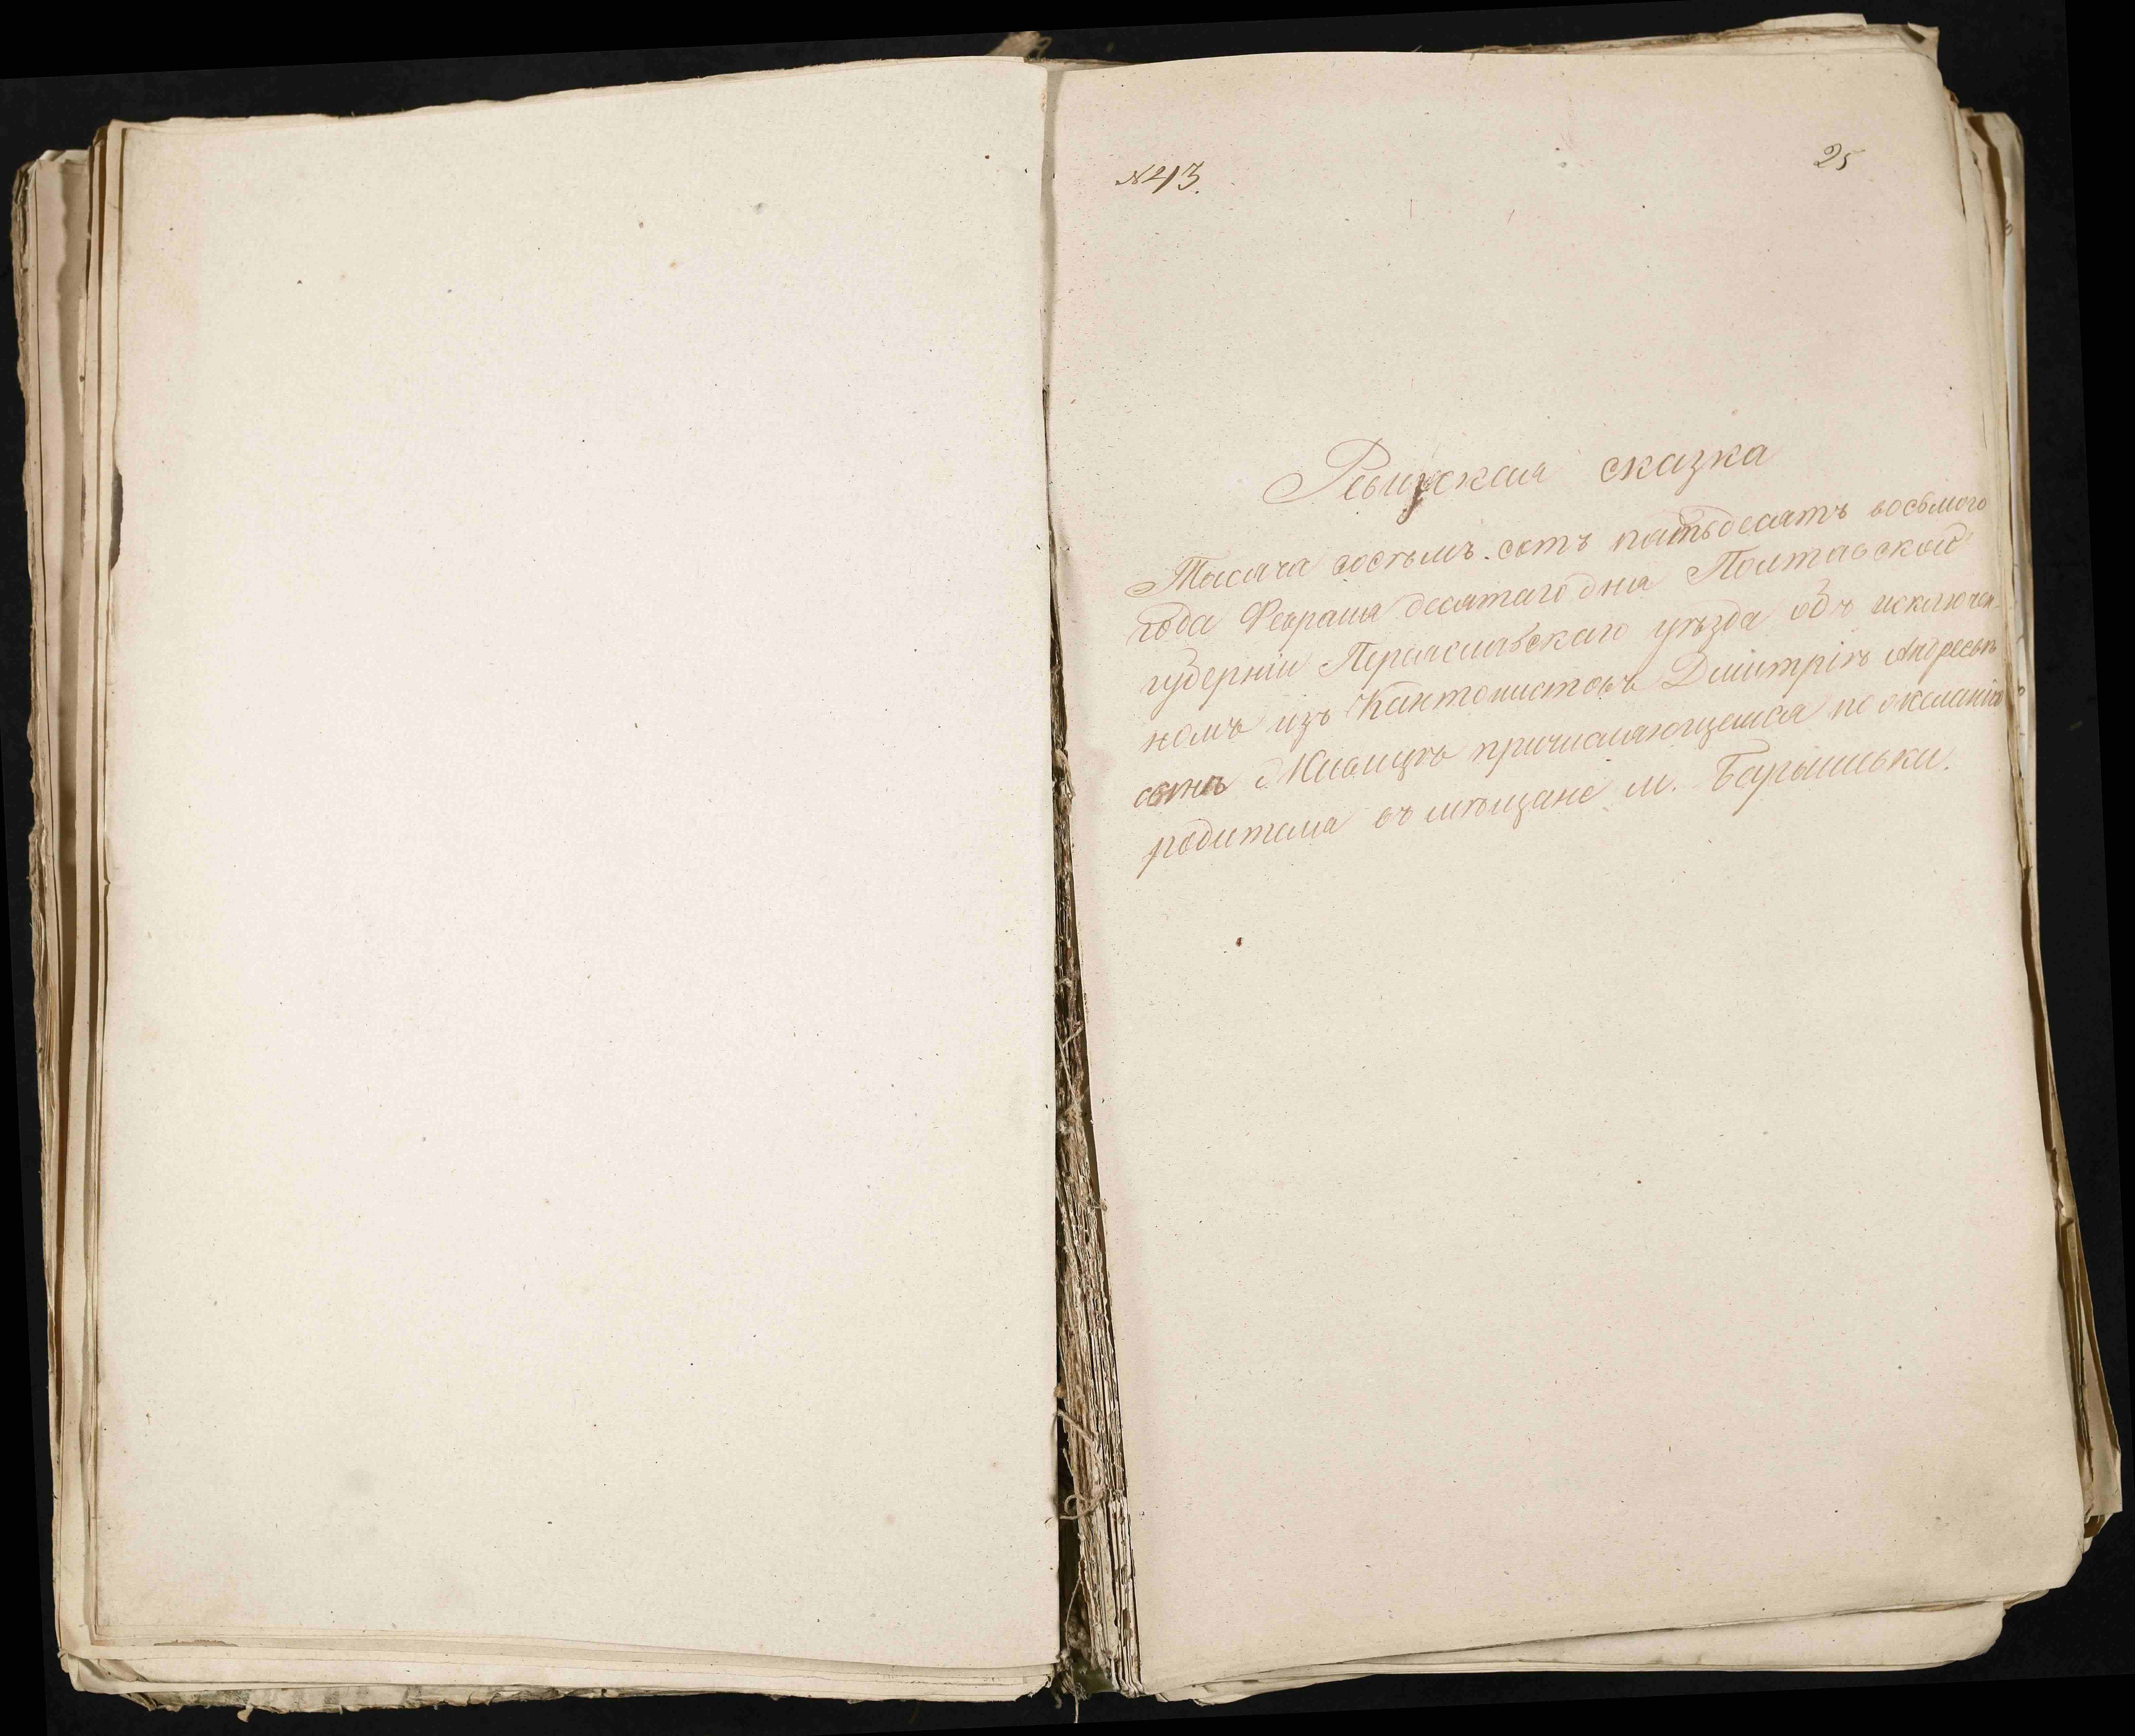 № 43.
25
Ревизская сказка
Тысяча восемь сотъ пятьдесятъ восьмого
года Февраля десятаго дня Полтавской
губерніи Переяславскаго уѣзда объ исключен-
номъ изъ Кантонистовъ Дмитріѣ Андреевѣ
сынѣ причисляющемся по желанію
родителя въ мѣщане м. Барышьвки.